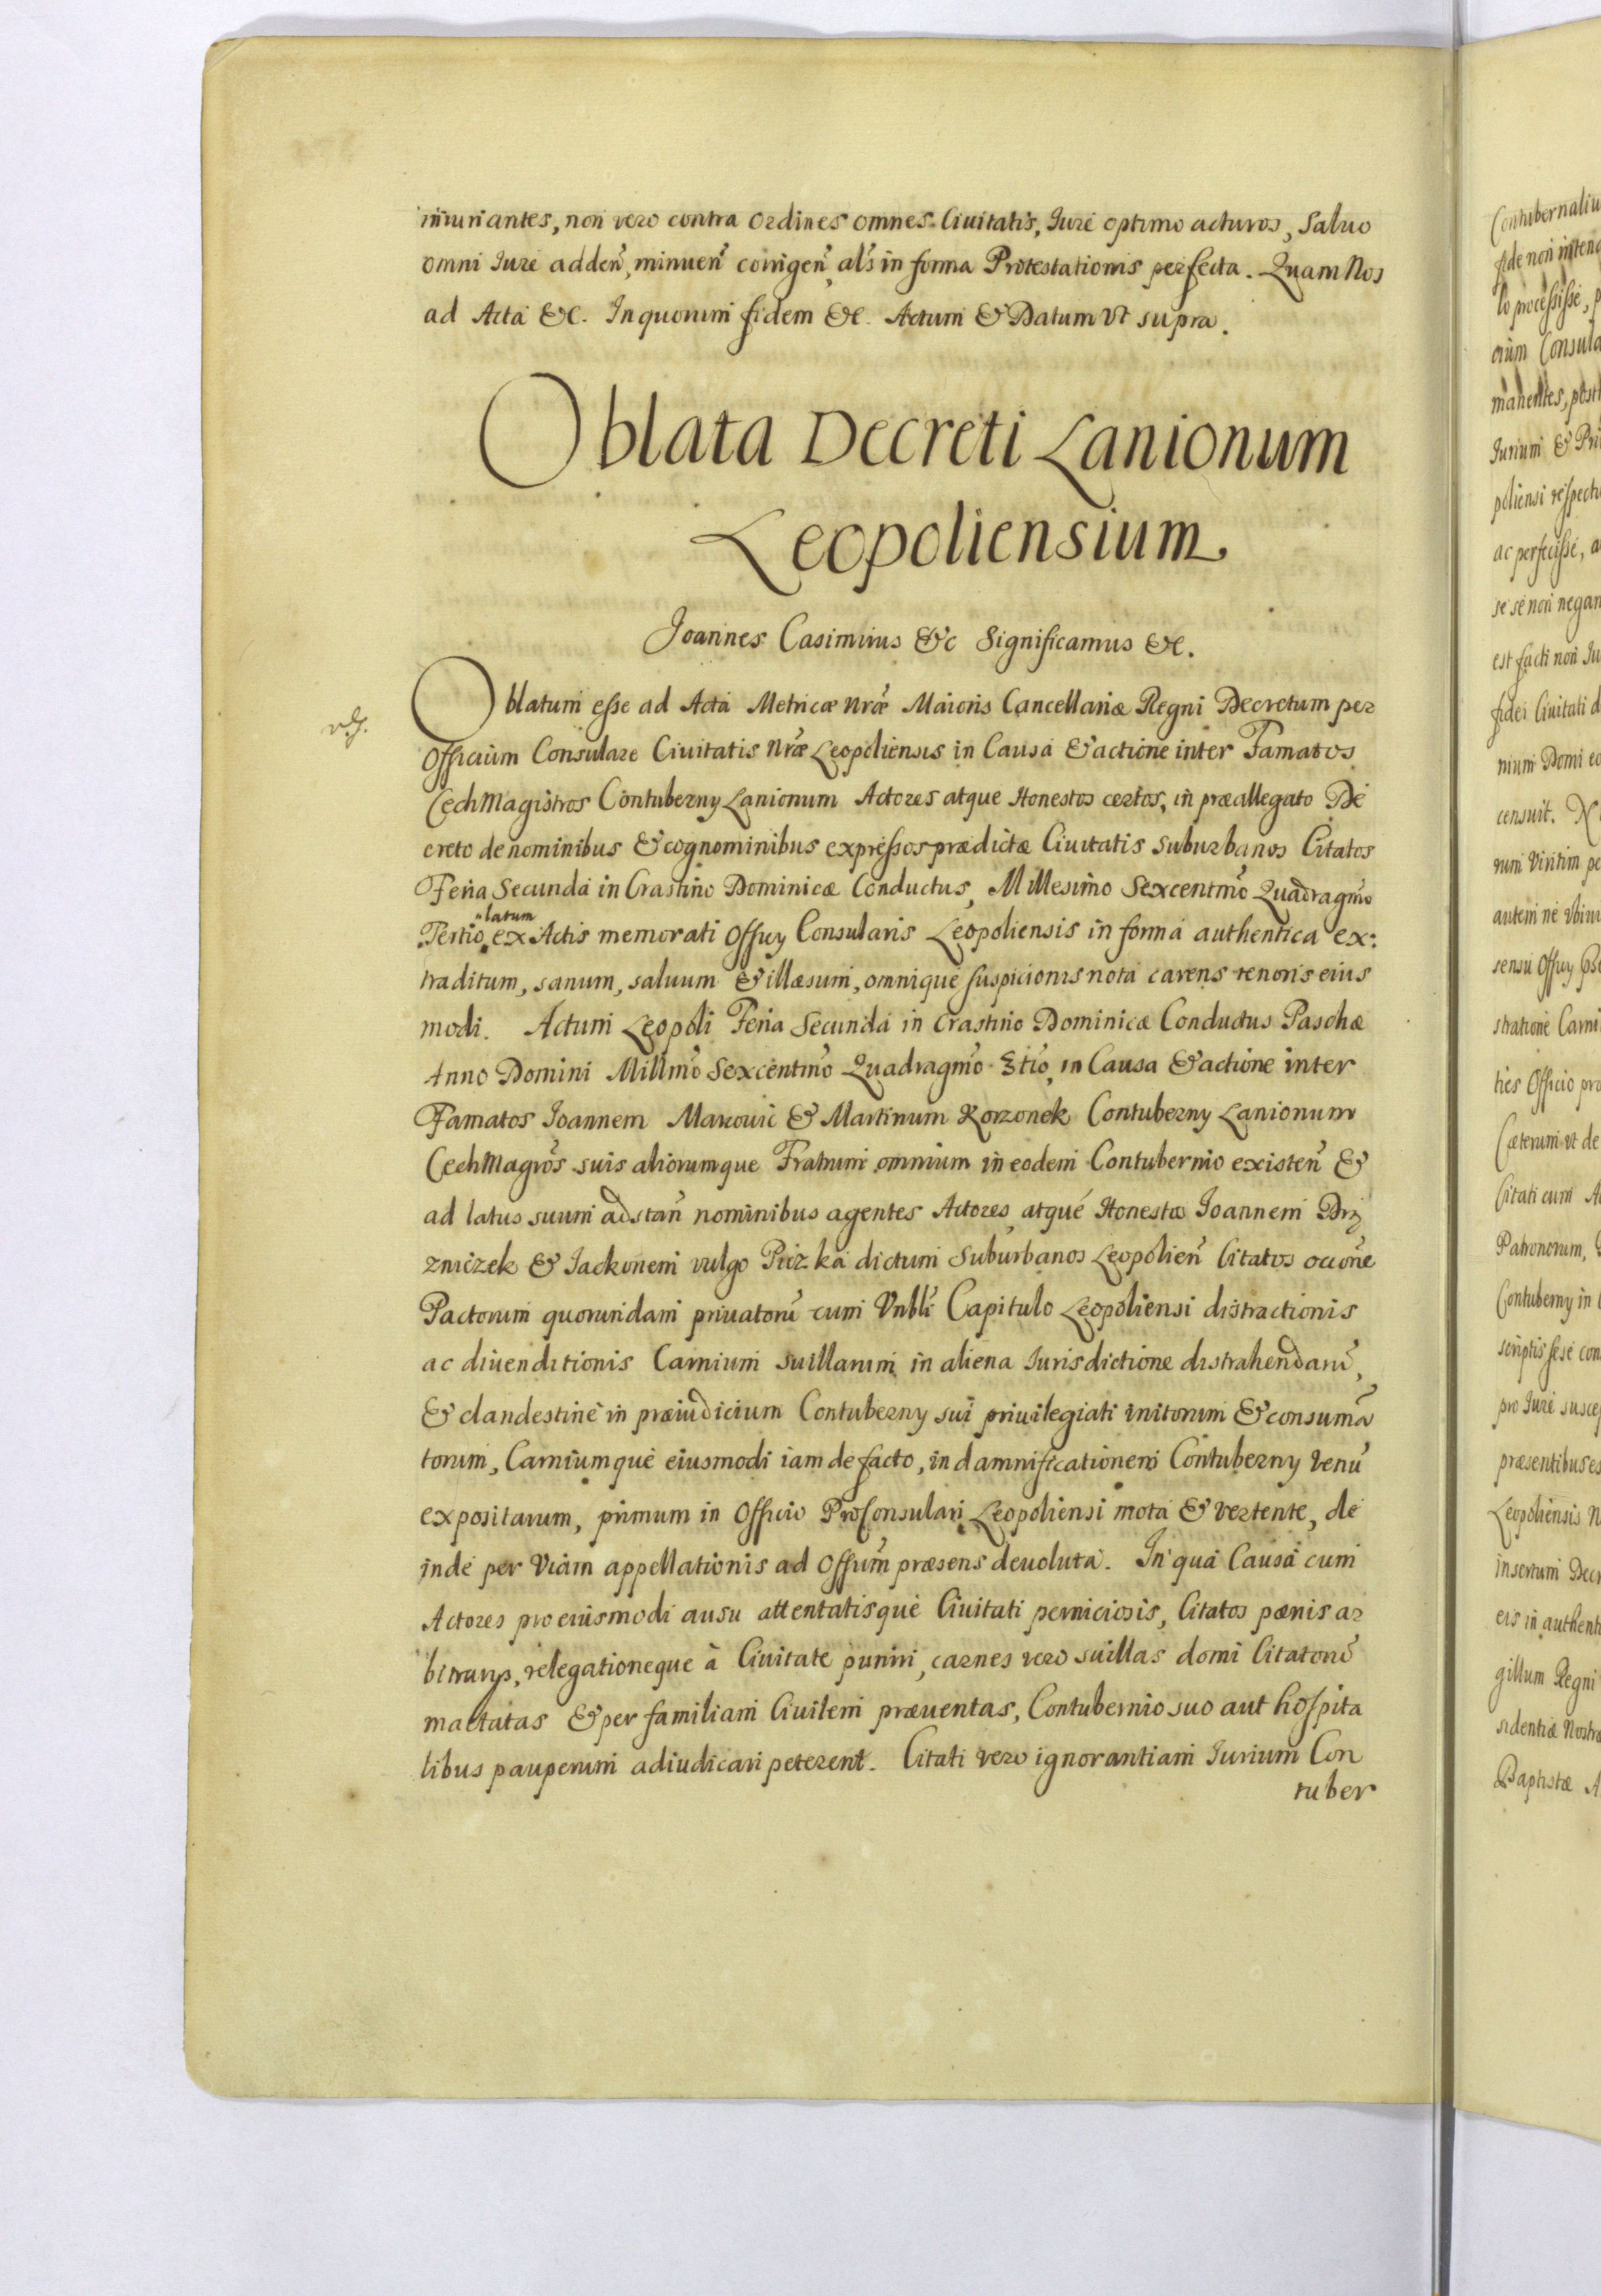 iniuriantes, non vero contra Ordines omnes Ciuitatis, Iure optimo acturos, Saluo
omni Iure adden̄, minuen̄ corrigen̄ als in forma Protestationis perfecta. Quam Nos
ad Acta &c. In quorum fidem &c. Actum & Datum vt supra.
Oblata Decreti Lanionum
Leopoliensium
Joannes Casimirus &c Significamus &c.
Oblatum esse ad Acta Metricæ Nr̄æ Maioris Cancellariæ Regni Decretum per
Officium Consulare Ciuitatis Nr̄æ Leopoliensis in Causa & actione inter Famatos
CechMagistros Contuberny Lanionum Actores atque Honestos certos, in præallegato De
creto de nominibus & cognominibus expressos prædictæ Ciuitatis Suburbanos Citatos
Feria Secunda in Crastino Dominicæ Conductus, Millesimo Sexcentm̄o Quadragm̄o
latum
Tertio, ex Actis memorati Officy Consularis Leopoliensis in forma authentica ex:
traditum, sanum, saluum & illæsum, omnique suspicionis nota carens tenoris eius
modi. Actum Leopoli Feria Secunda in Crastino Dominicæ Conductus Paschæ
Anno Domini Millm̄o Sexcentm̄o Quadragm̄o 3tio, in Causa & actione inter
Famatos Ioannem Makowic & Martinum Korzonek Contuberny Lanionum
CechMagr̄os suis aliorumque Fratrum omnium in eodem Contubernio existen̄ &
ad latus suum adstan̄ nominibus agentes Actores atque Honestos Ioannem
& Jackonem vulgo dictum Suburbanos Leopolien̄ Citatos occōne
Pactorum quorundam priuatorū cum Vnbli Capitulo Leopoliensi distractionis
ac diuenditionis Carnium suillarum in aliena Iurisdictione distrahendarū,
& clandestine in præiudicium Contuberny sui priuilegiati initorum & consumā
torum, Carniumque eiusmodi iam de facto, in damnificationem Contuberny venū
expositarum, primum in Officio ProConsulari Leopoliensi mota & vertente, de
inde per viam appellationis ad Offium præsens deuoluta. In qua Causa cum
Actores pro eiusmodi ausu attentatisque Ciuitati perniciosis, Citatos pœnis ar
bitrarys, relegationeque à Ciuitate puniri, carnes vero suillas domi Citatorū
mactatas & per familiam Ciuilem præuentas, Contubernio suo aut hospita
libus pauperum adiudicari peterent. Citati vero ignorantiam Iurium Con
tuber